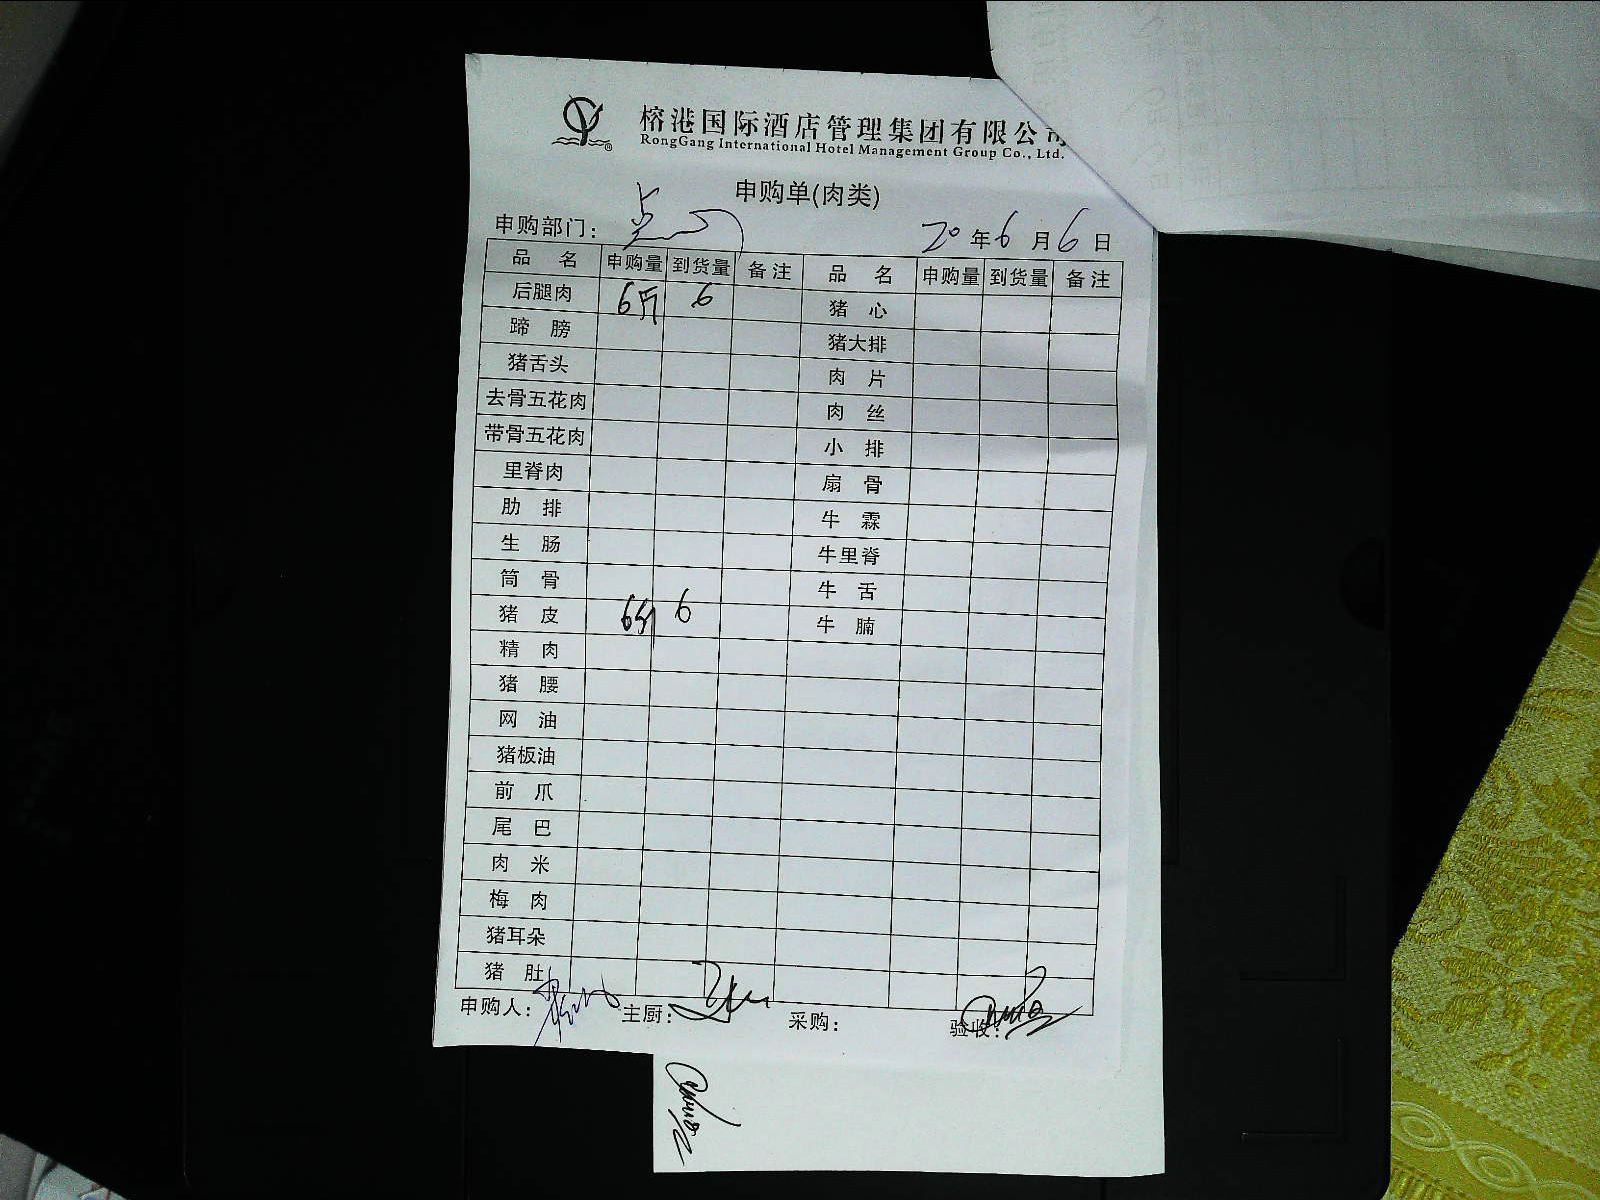 榕港国际酒店管理集团有限公司
RongGang International Hotel Management Group Co., Ltd.
申购单(肉类)
申购部门: 点心 20年6月6日
品名 申购量 到货量 备注 品名 申购量 到货量 备注
后腿肉 6斤 6 猪心
蹄膀 猪大排
猪舌头 肉片
去骨五花肉 肉丝
带骨五花肉 小排
里脊肉 扇骨
肋排 牛霖
生肠 牛里脊
筒骨 牛舌
猪皮 6斤 6 牛腩
精肉
猪腰
网油
猪板油
前爪
尾巴
肉米
梅肉
猪耳朵
猪肚
申购人: 主厨: 采购: 验收: